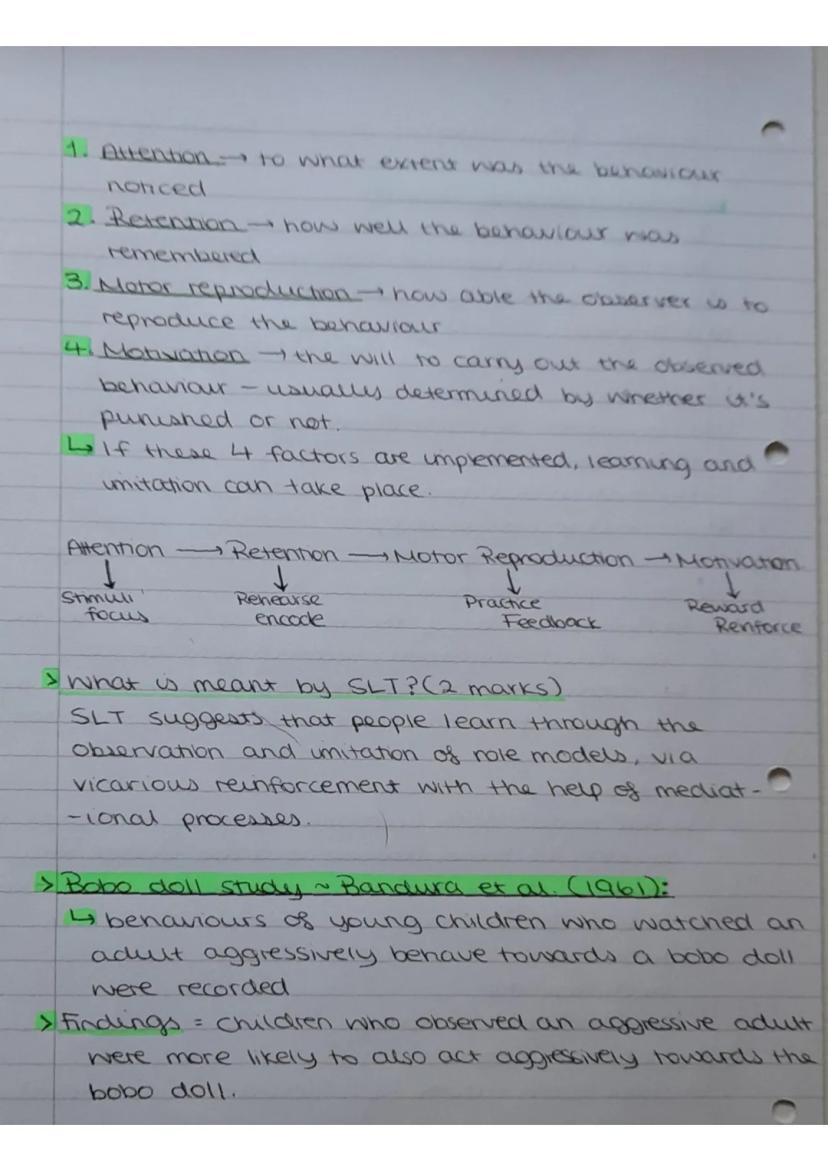 1. Attention → to what extent was the behaviour
noticed
2. Retention → how well the behaviour was
remembered
3. Motor reproduction → how able the observer is to
reproduce the behaviour
4. Motivation → the will to carry out the observed
behaviour – usually determined by whether it's
punished or not.
↳ If these 4 factors are implemented, learning and
imitation can take place.
Attention → Retention → Motor Reproduction → Motivation
↓ ↓ ↓ ↓
Stimuli Rehearse Practice Reward
focus encode Feedback Renforce
> What is meant by SLT? (2 marks)
SLT suggests that people learn through the
observation and imitation of role models, via
vicarious reinforcement with the help of mediat-
-ional processes.
> Bobo doll study ~ Bandura et al. (1961):
↳ behaviours of young children who watched an
adult aggressively behave towards a bobo doll
were recorded
> Findings = children who observed an aggressive adult
were more likely to also act aggressively towards the
bobo doll.